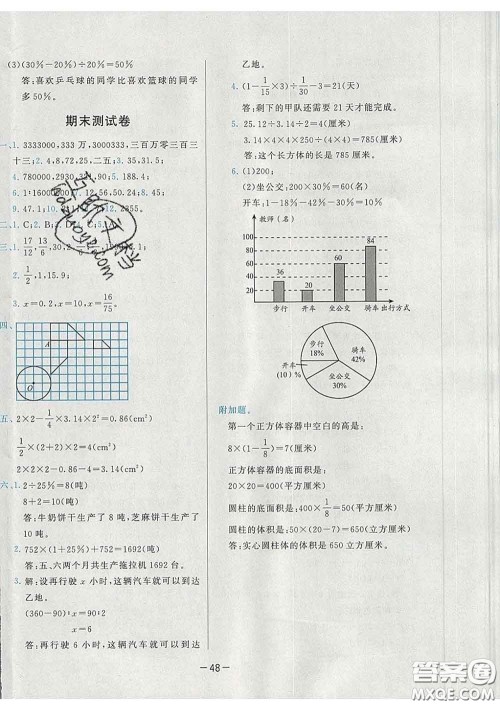 (3)(30%-20%)÷20%=50%
答:喜欢乒乓球的同学比喜欢篮球的同学
多50%。
期末测试卷
一、1. 3333000,333万,3000333,三百万零三百三
十三;2. 4,8,72,25,二五;3. 35,31.5;
4. 780000,930,31,90;5. 188.4;
9. 47.1;
二、1. C;2. B;
2. 1/2,1,15.9;
3. x=0.2,x=10,x=16/75。
四、
A
O
五、2×2-1/4×3.14×2=0.86(cm²)
1/2×(2+2)×2=4(cm²)
2×2×2-0.86-4=3.14(cm²)
六、1. 2÷25%=8(吨)
8×2=16(吨)
答:牛奶饼干生产了8吨,芝麻饼干生产了
16吨。
2. 752×(1+25%)+752=1692(吨)
答:五、六两个月共生产拖拉机1692台。
3. 解:设再行驶x小时,这辆汽车就可以到达
乙地。
(360-90):x=90:2
x=6
答:再行驶6小时,这辆汽车就可以到达
乙地。
4. (1-1/15×3)÷1/30-3=21(天)
答:剩下的甲队还需要21天才能完成。
5. 25.12÷3.14÷2=4(厘米)
3.14×4×4×=785(厘米)
答:这个长方体的长是785厘米。
6. (1)200;
(2)坐公交,200×30%=60(名)
开车:1-18%-42%-30%=10%
教师(名)
36
20
60
84
步行 开车 坐公交 骑车 出行方式
步行
18%
骑车
42%
开车
(10)%
坐公交
30%
附加题。
第一个正方体容器中空白的高是:
8×(1-1/8)=7(厘米)
正方体容器的底面积是:
20×20=400(平方厘米)
圆柱的底面积是:400×1/8=50(平方厘米)
圆柱的体积是:50×(20-7)=650(立方厘米)
答:实心圆柱体的体积是650立方厘米。
—48—
答案圈
MXQE.COM